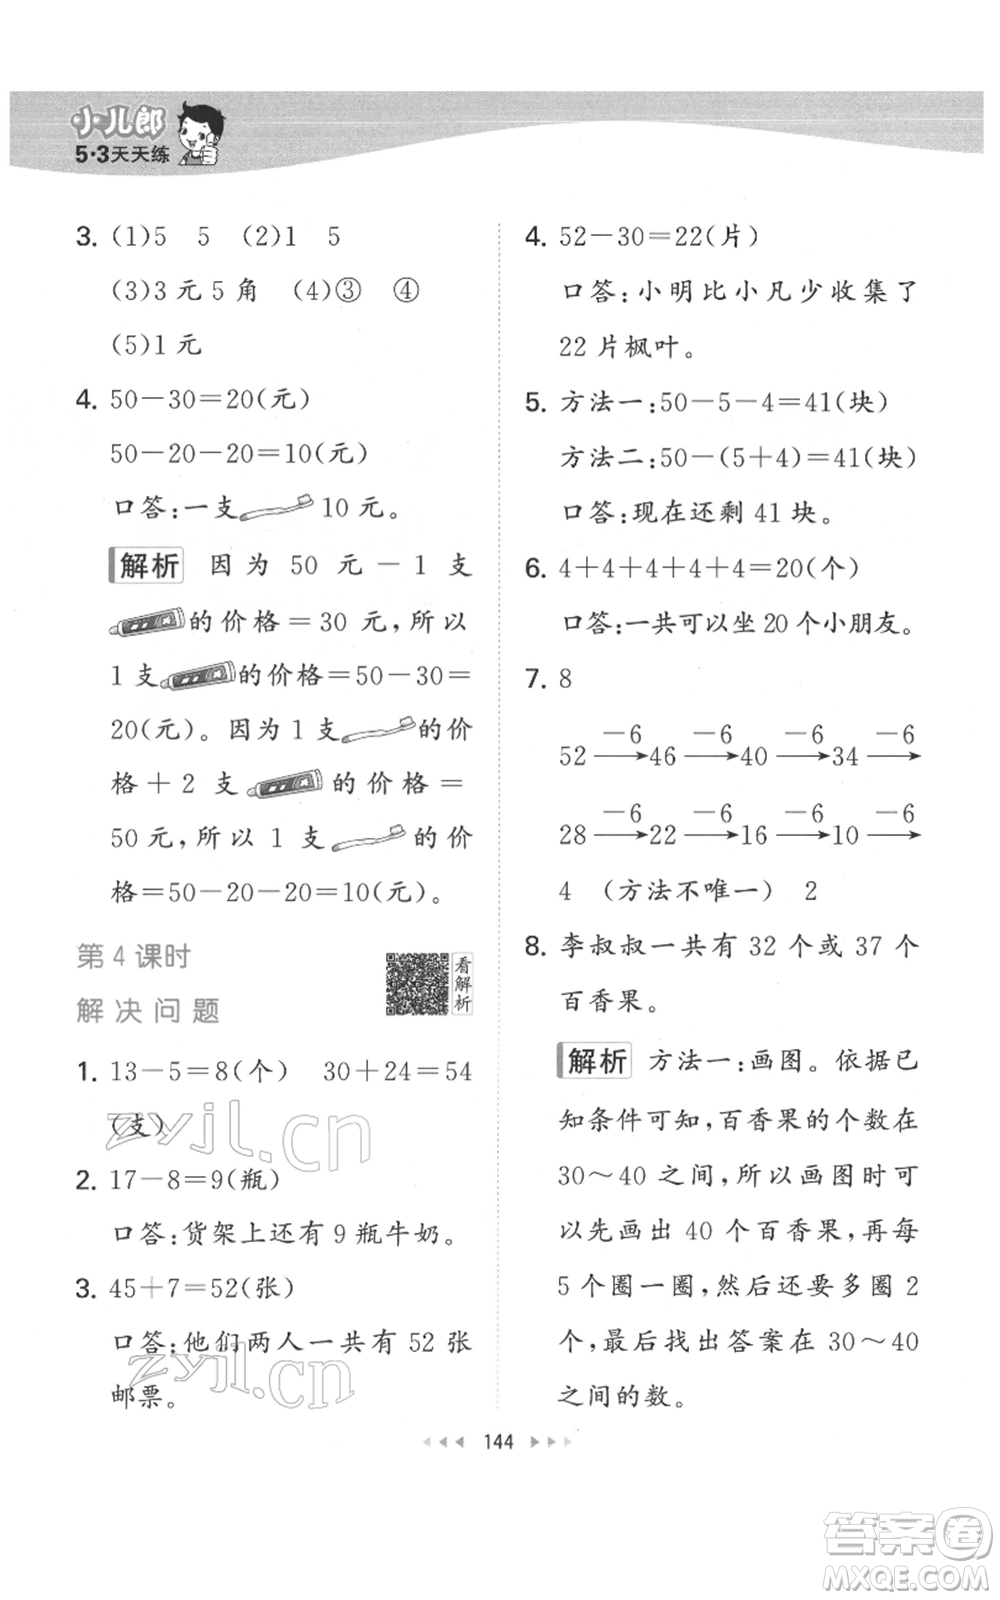 小儿郎
5·3天天练
3. (1)5 5 (2)1 5
(3)3元5角 (4)③ ④
(5)1元
4. 50-30=20(元)
50-20-20=10(元)
口答:一支 10元。
解析 因为 50 元-1 支
的价格=30元,所以
1支 的价格=50-30=
20(元)。因为1支 的价
格+2支 的价格=
50元,所以1支 的价
格=50-20-20=10(元)。
第4课时
解决问题
看解析
1. 13-5=8(个) 30+24=54
(支)
2. 17-8=9(瓶)
口答:货架上还有9瓶牛奶。
3. 45+7=52(张)
口答:他们两人一共有52张
邮票。
4. 52-30=22(片)
口答:小明比小凡少收集了
22片枫叶。
5. 方法一:50-5-4=41(块)
方法二:50-(5+4)=41(块)
口答:现在还剩41块。
6. 4+4+4+4+4=20(个)
口答:一共可以坐20个小朋友。
7. 8
-6 -6 -6 -6
52 46 40 34
-6 -6 -6 -6
28 22 16 10
4 (方法不唯一) 2
8. 李叔叔一共有32个或37个
百香果。
解析 方法一:画图。依据已
知条件可知,百香果的个数在
30～40之间,所以画图时可
以先画出40个百香果,再每
5个圈一圈,然后还要多圈2
个,最后找出答案在30～40
之间的数。
144
zyjl.cn
zyjl.cn
答案卷
MXQE.COM